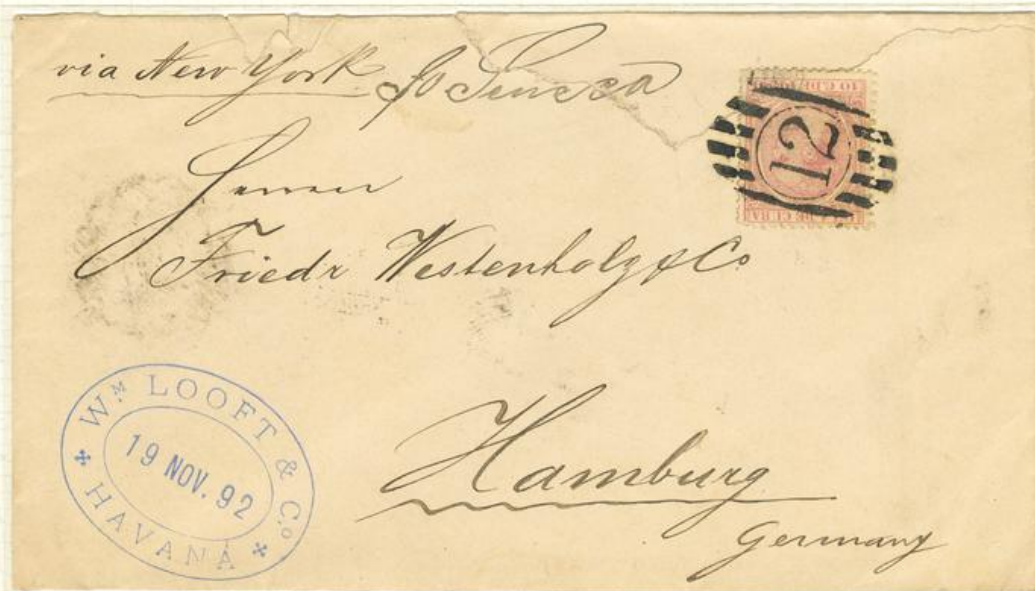 via New York p Seneca
Herren
Friedr Westenholz & Co
Hamburg
Germany
12
10 C. DE
DE CUBA
WM LOOFT & Co
19 NOV. 92
HAVANA